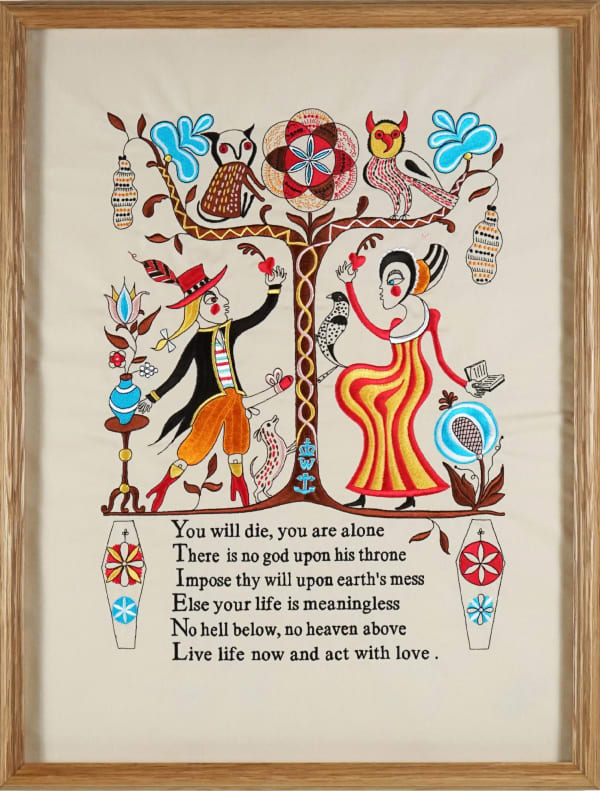 W
You will die, you are alone
There is no god upon his throne
Impose thy will upon earth's mess
Else your life is meaningless
No hell below, no heaven above
Live life now and act with love .